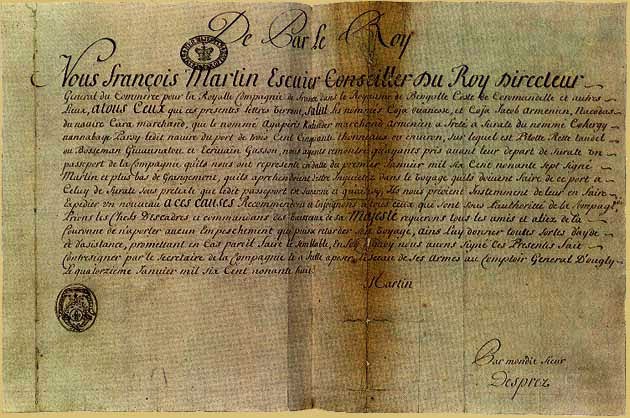 De Par le Roy
Nous françois Martin Escuier Conseiller Du Roy Directeur
General du Commerce pour la Royalle Compagnie de france dans le Royaume de Bengalle Coste de Coromandelle et autres
Lieux, atous Ceux qui ces presents lettres Salut les nommez Coja ouanesse, et Coja Jacob Armenien, Nacodas
du navire Cara marchand, que le nommé Agapiri Kalender marchand armenien à freté à Surate le nommé
ledit navire du port de trois Cent Cinquante Tonneaux ou environ, sur lequel est Pilotte
ou Bosseman et Ecrivain Gasson, nous ayants remontré quayants pris avant leur depart de Surate un
passeport de la Compagnie quils nous ont representé en datte du premier Janvier mil six Cent nonante sept Signé
Martin et plus bas de Grangemont, quils aprehendoient destre Inquietez dans le Voyage quils doivent faire de ce port a
Celuy de Surate sous pretexte que ledit passeport est suranné et quainsy Ils nous prioient Instemment de leur en faire
Expedier un nouveau aces causes Recommendons a tous ceux qui sont sous l'authorité de la Compagnie
Prions les Chefs Descadres et commandans des vaisseaux de Sa Majesté requerons tous les amis et aliez de la
Couronne de n'aporter aucun Empeschement qui puisse retarder son Voyage, ains luy donner toutes sortes dayde
et d'asistance, promettant en Cas pareil faire le semblable, En foy dequoy nous avons Signé Ces Presentes fait
Contresigner par le Secretaire de la Compagnie et à Icelle aposer le Sceau de ses Armes au Comptoir General D'ougly
Le quatorzieme Janvier mil six Cent nonante huit
Martin
Par mondit Sieur
Desprez